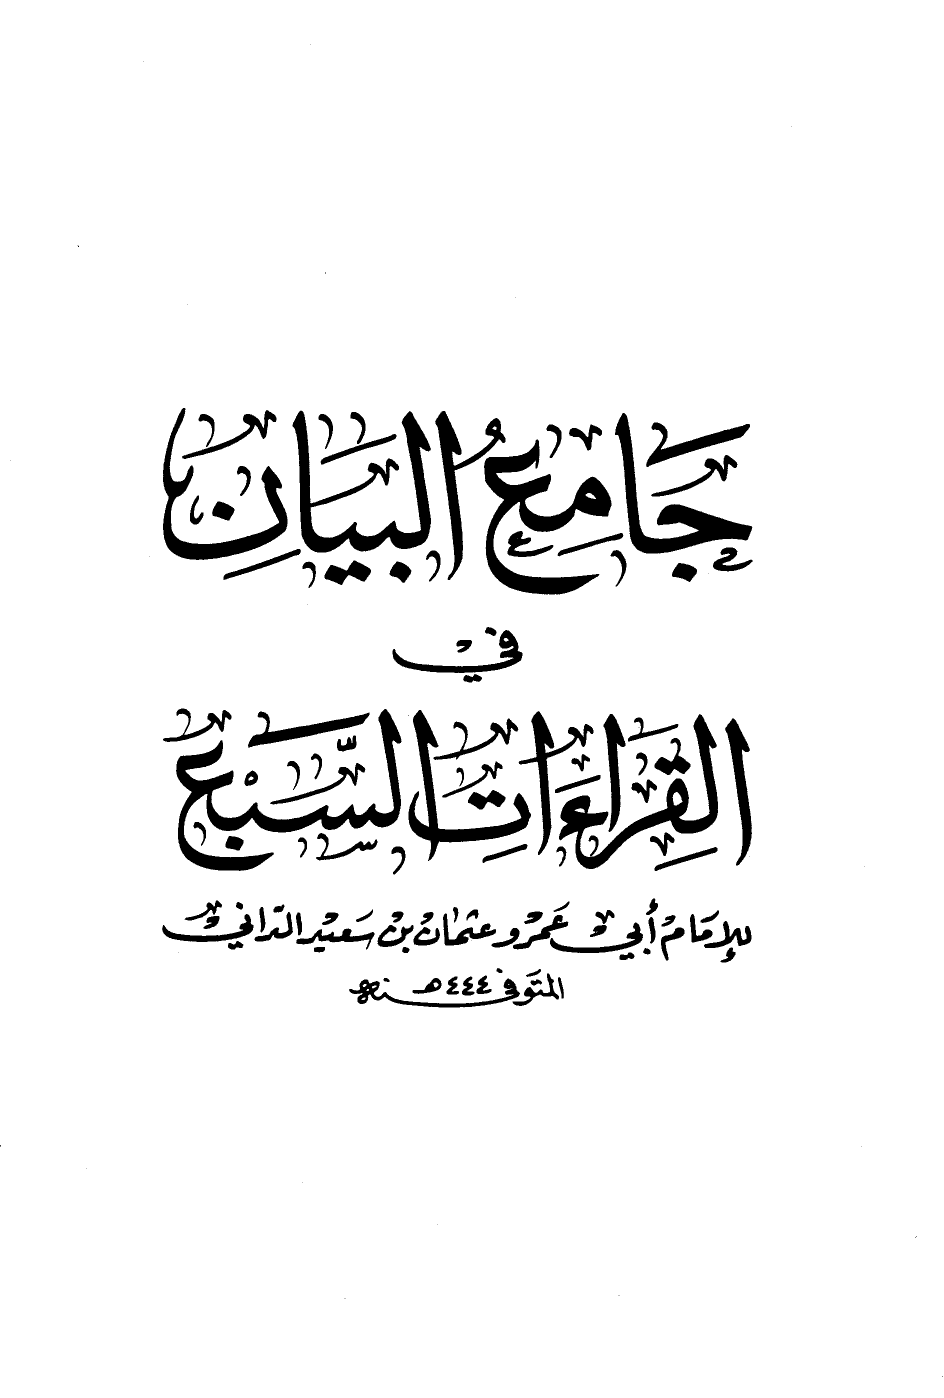 جَامِعُ البَيَانِ
فِي
القِرَاءَاتِ السَّبْعِ
للإمَام أبي عَمرو عثمَان بن سَعيد الدّاني
المتوَفى سنة ٤٤٤هـ